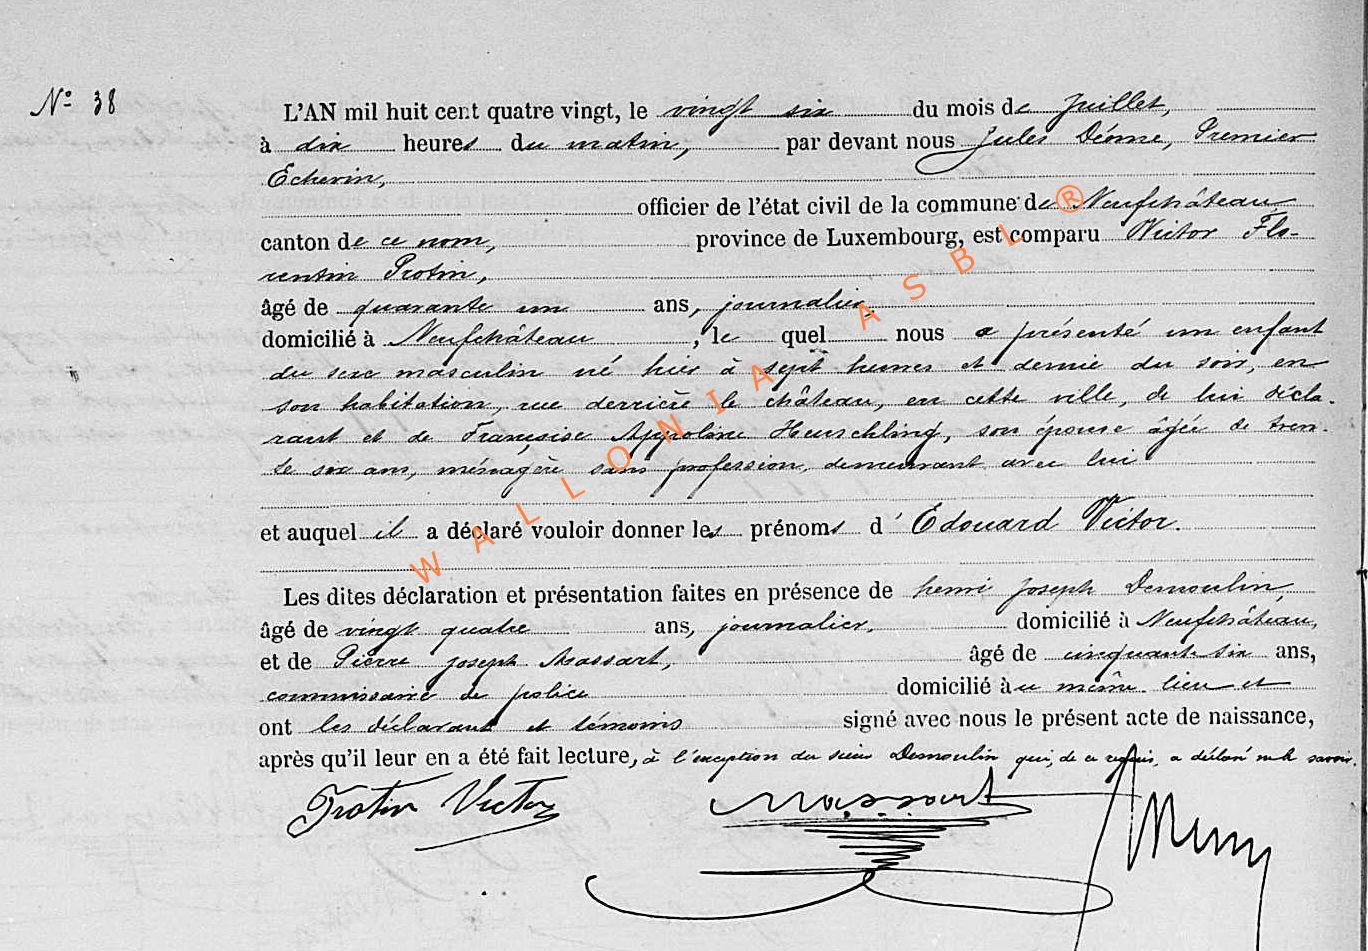 N° 38
L'AN mil huit cent quatre vingt, le vingt six du mois de Juillet,
à dix heures du matin, par devant nous Jules Déome, Premier
Echevin,
officier de l'état civil de la commune de Neufchâteau
canton de ce nom, province de Luxembourg, est comparu Victor Flo-
rentin Protin,
âgé de quarante un ans, journalier,
domicilié à Neufchâteau, le quel nous a présenté un enfant
du sexe masculin né hier à sept heures et demie du soir, en
son habitation, rue derrière le château, en cette ville, de lui décla-
rant et de Françoise Appoline Heuschling, son épouse âgée de tren-
te six ans, ménagère sans profession, demeurant avec lui
et auquel il a déclaré vouloir donner les prénoms d'Edouard Victor.
Les dites déclaration et présentation faites en présence de henri joseph Demoulin,
âgé de vingt quatre ans, journalier, domicilié à Neufchâteau,
et de Pierre joseph Massart, âgé de cinquante six ans,
commissaire de police domicilié au même lieu et
ont les déclarant et témoins signé avec nous le présent acte de naissance,
après qu'il leur en a été fait lecture, à l'exception du sieur Demoulin qui, de ce requis, a déclaré ne le savoir.
Protin Victor Massart
WALLONIA ASBL ®